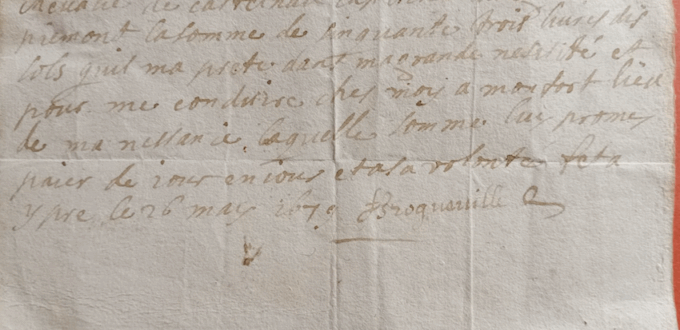 chevalie de castelnau
piemont la somme de sinquante trois livres dis
sols quil ma prete dant ma grande nesesité et
pour me conduire ches mois a monfort lieu
de ma nessance laquelle somme luy promes
paier de jour en jour et a sa volonte feta
ypre le 26 may 1679 Broqueville